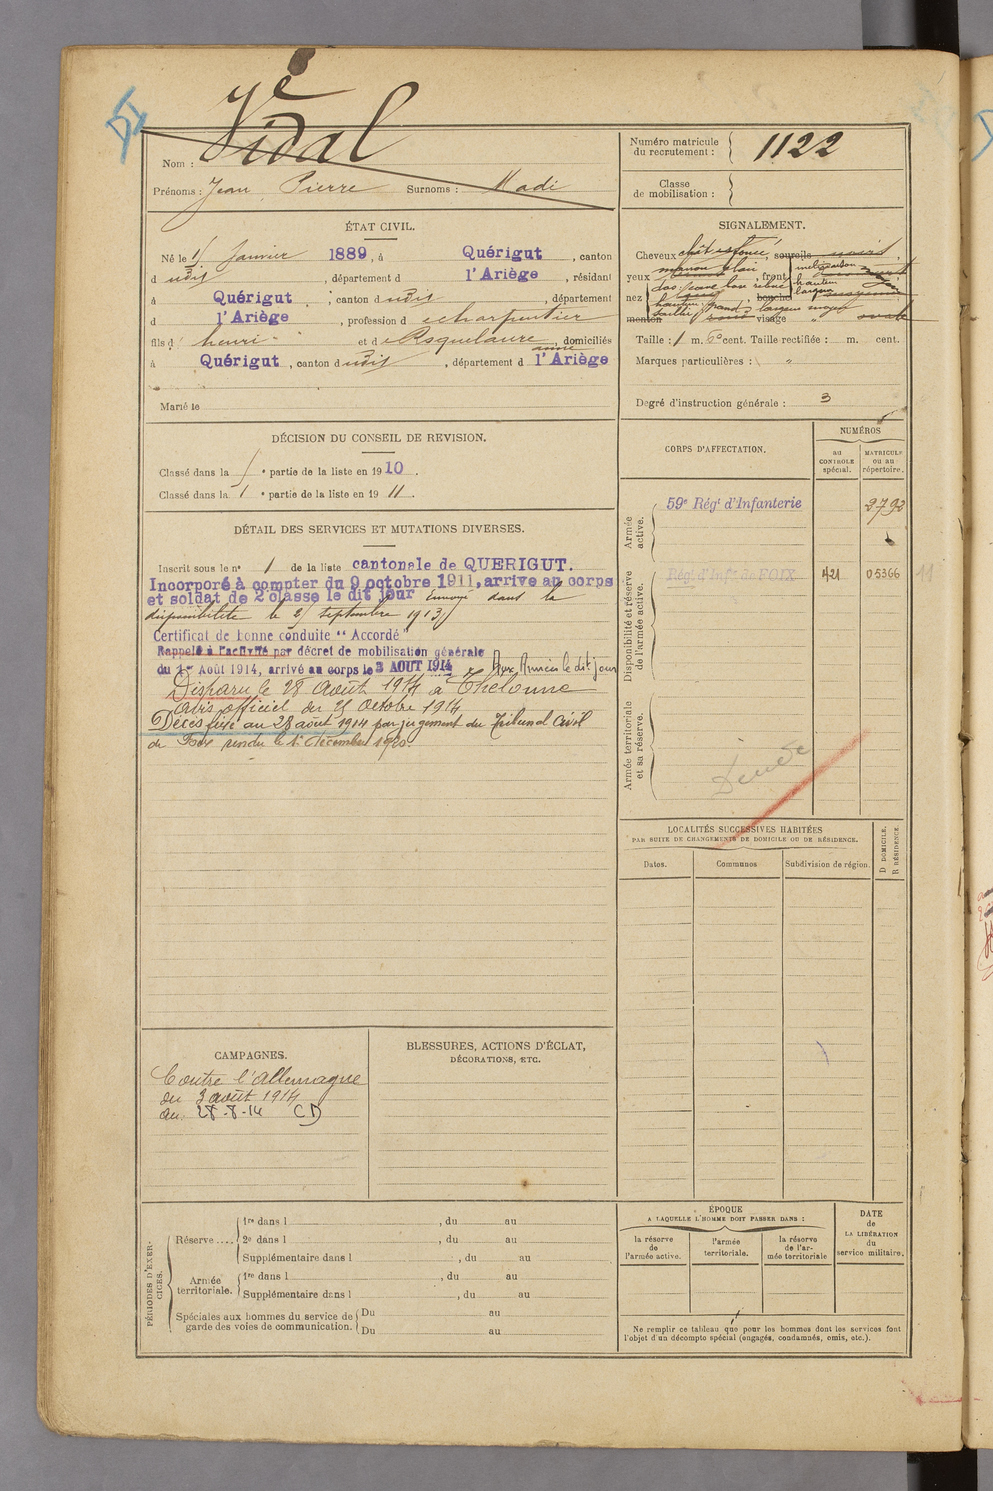 Vidal
Nom :
Prénoms : Jean Pierre Surnoms : Madi
Numéro matricule du recrutement : 1122
Classe de mobilisation :
ÉTAT CIVIL.
Né le 1er Janvier 1889, à Quérigut, canton
d udit, département d l'Ariège, résidant
à Quérigut, canton dudit, département
d l'Ariège, profession de charpentier
fils d' henri et de Roquelaure anne, domiciliés
à Quérigut, canton dudit, département d l'Ariège
Marié le
SIGNALEMENT.
Cheveux chât. foncé, sourcils noirs,
yeux marron, front
nez dos, bouche
menton visage ovale
Taille : 1 m. cent. Taille rectifiée : m. cent.
Marques particulières : "
Degré d'instruction générale : 3
DÉCISION DU CONSEIL DE REVISION.
Classé dans la partie de la liste en 1910.
Classé dans la 1e partie de la liste en 1911.
DÉTAIL DES SERVICES ET MUTATIONS DIVERSES.
Inscrit sous le no 1 de la liste cantonale de QUERIGUT.
Incorporé à compter du 9 octobre 1911, arrive au corps
et soldat de 2e classe le dit jour Envoyé dans la
disponibilité le septembre 1913
Certificat de bonne conduite "Accordé"
Rappelé à l'activité par décret de mobilisation générale
du 1er Août 1914, arrivé au corps le 3 AOUT 1914 Aux Armées le dit jour
Disparu le 28 Août 1914 à Thelonne
avis officiel du 25 octobre 1914
Décès fixé au 28 août 1914 par jugement du Tribunal Civil
de Foix rendu le 1er décembre 1920.
CORPS D'AFFECTATION.
NUMÉROS
au CONTROLE spécial.
MATRICULE ou au répertoire.
Armée active.
59e Régt d'Infanterie 3792
Disponibilité et réserve de l'armée active.
Régt d'Infie de FOIX 421 05366
Armée territoriale et sa réserve.
LOCALITÉS SUCCESSIVES HABITÉES
PAR SUITE DE CHANGEMENTS DE DOMICILE OU DE RÉSIDENCE.
Dates. Communes Subdivision de région. D DOMICILE. R RÉSIDENCE.
CAMPAGNES.
Contre l'Allemagne
du 3 août 1914
au 28-8-14 CD
BLESSURES, ACTIONS D'ÉCLAT,
DÉCORATIONS, ETC.
PÉRIODES D'EXERCICES.
Réserve ....
1re dans l , du au
2e dans l , du au
Supplémentaire dans l , du au
Armée territoriale.
1re dans l , du au
Supplémentaire dans l , du au
Spéciales aux hommes du service de garde des voies de communication.
Du au
Du au
ÉPOQUE
A LAQUELLE L'HOMME DOIT PASSER DANS :
la réserve de l'armée active.
l'armée territoriale.
la réserve de l'armée territoriale
DATE de LA LIBÉRATION du service militaire.
Ne remplir ce tableau que pour les hommes dont les services font
l'objet d'un décompte spécial (engagés, condamnés, omis, etc.).